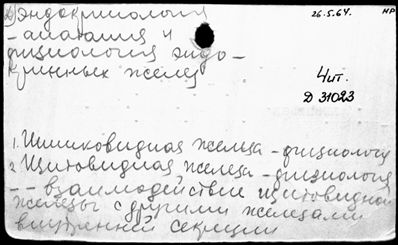 Эндокринология
26.5.64.
НР
- анатомия и
физиология эндо-
кринных желез
4 ит.
Д 31023
1. Шишковидная железа - физиология
2. Щитовидная железа - физиология
- - взаимодействие щитовидной
железы с другими железами
внутренней секреции